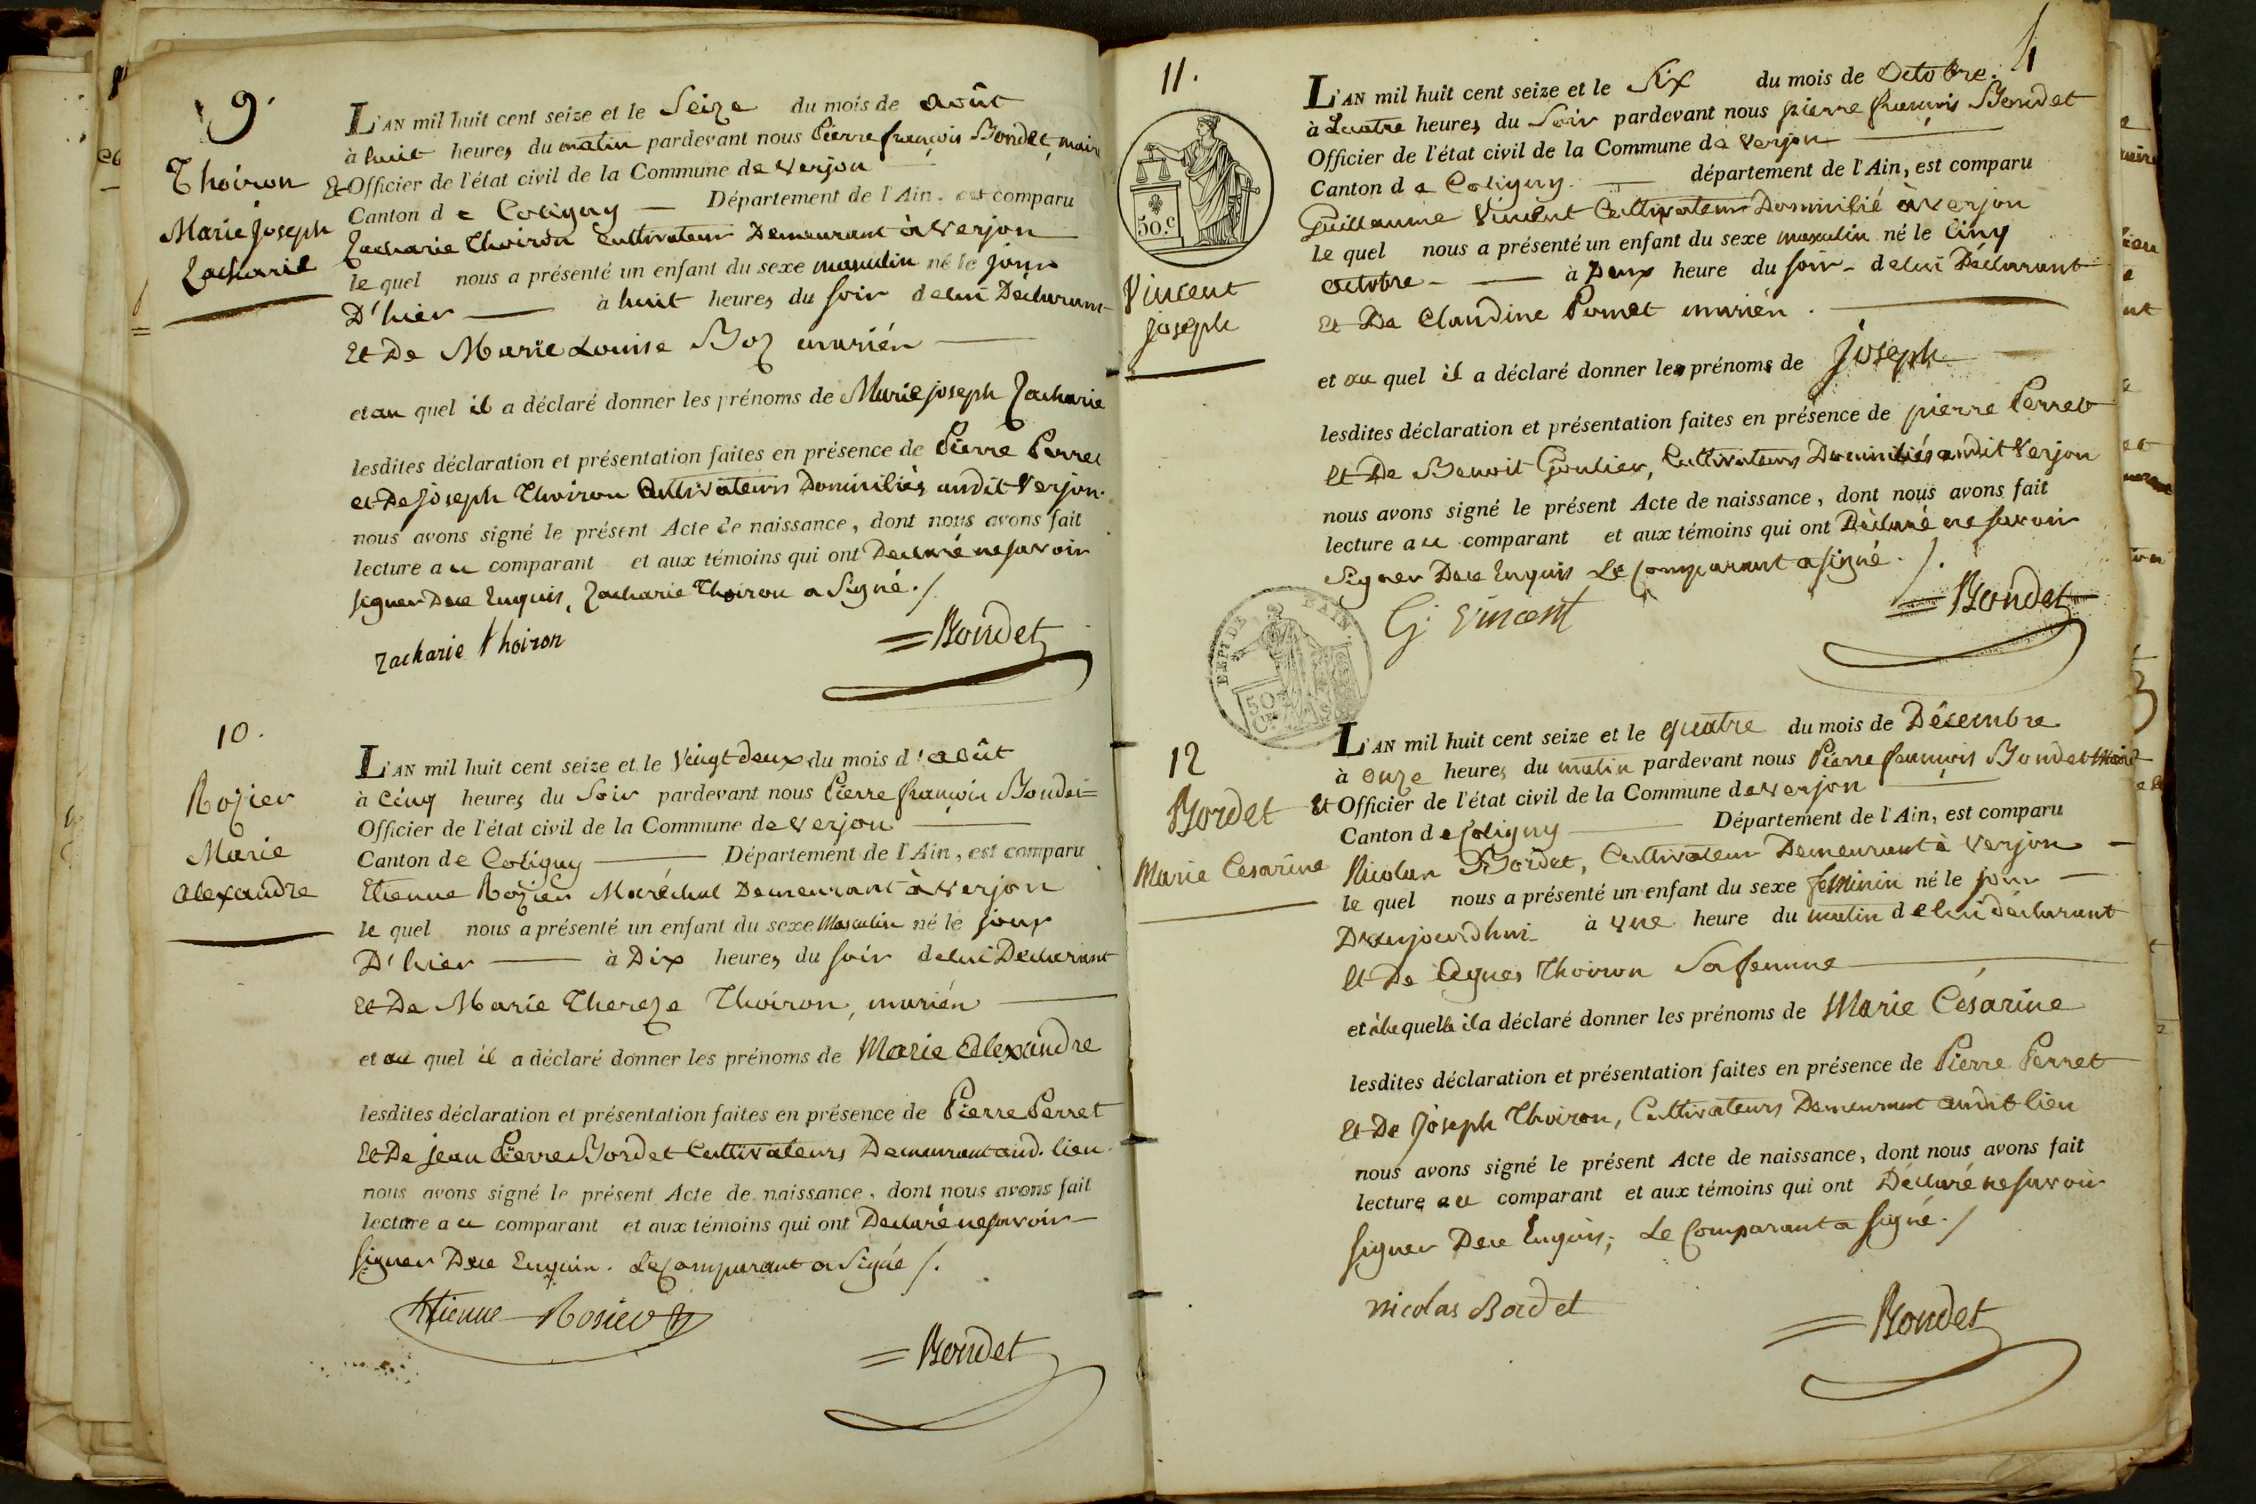 9.
Thoiron
Marie Joseph
Zacharie
L'AN mil huit cent seize et le Seize du mois de août
à huit heures du matin pardevant nous Pierre françois Bondet, maire
& Officier de l'état civil de la Commune de Verjon
Canton de Coligny — Département de l'Ain, est comparu
Zacharie Thoiron Cultivateur Demeurant à Verjon
le quel nous a présenté un enfant du sexe masculin né le jour
D'hier — à huit heures du soir de lui Declarant
Et De Marie Louise Boz mariés —
et au quel il a déclaré donner les prénoms de Marie joseph Zacharie
lesdites déclaration et présentation faites en présence de Pierre Perret
et De Joseph Thoiron Cultivateurs Domiciliés audit Verjon.
nous avons signé le présent Acte de naissance, dont nous avons fait
lecture au comparant et aux témoins qui ont Declaré ne savoir
signer De ce Enquis, Zacharie Thoiron a Signé ./
Zacharie thoiron
=Bondet
10.
Rozier
Marie
alexandre
L'AN mil huit cent seize et le Vingt deux du mois d'août
à Cinq heures du Soir pardevant nous Pierre françois Bondet=
Officier de l'état civil de la Commune de Verjon —
Canton de Coligny — Département de l'Ain, est comparu
Etienne Rozier Maréchal Demeurant à Verjon
le quel nous a présenté un enfant du sexe Masculin né le jour
D'hier — à Dix heures du soir de lui Declarant
Et De Marie Thereze Thoiron, mariés —
et au quel il a déclaré donner les prénoms de Marie Alexandre
lesdites déclaration et présentation faites en présence de Pierre Perret
Et De jean Pierre Bordet Cultivateurs Demeurant aud. lieu.
nous avons signé le présent Acte de naissance, dont nous avons fait
lecture au comparant et aux témoins qui ont Declaré ne savoir —
signer De ce Enquis. Le Comparant a Signé /.
Etienne Rosier
=Bondet
4
11.
50.c
Vincent
joseph
L'AN mil huit cent seize et le Six du mois de Octobre.
à quatre heures du Soir pardevant nous pierre françois Bondet
Officier de l'état civil de la Commune de Verjon —
Canton de Coligny. — département de l'Ain, est comparu
Guillaume Vincent Cultivateur Domicilié à Verjon
le quel nous a présenté un enfant du sexe masculin né le Cinq
octobre — à Deux heure du soir — de lui Déclarant
Et De Claudine Pomet mariés. —
et au quel il a déclaré donner les prénoms de Joseph —
lesdites déclaration et présentation faites en présence de pierre Perret
Et De Benoit Goulier, Cultivateurs Domiciliés audit Verjon
nous avons signé le présent Acte de naissance, dont nous avons fait
lecture au comparant et aux témoins qui ont Déclaré ne savoir
signer De ce Enquis Le Comparant a signé. /.
G. Vincent
=Bondet
DEP.T DE L'AIN.
50
12
Bordet
Marie Cesarine
L'AN mil huit cent seize et le quatre du mois de Décembre
à onze heures du matin pardevant nous Pierre françois Bondet Maire
Et Officier de l'état civil de la Commune de Verjon —
Canton de Coligny — Département de l'Ain, est comparu
Nicolas Bordet, Cultivateur Demeurant à Verjon —
le quel nous a présenté un enfant du sexe feminin né le jour —
D'aujourdhui à une heure du matin de lui déclarant
Et De Agnes Thoiron Sa femme —
et à la quelle il a déclaré donner les prénoms de Marie Césarine
lesdites déclaration et présentation faites en présence de Pierre Perret
Et De Joseph Thoiron, Cultivateurs Demeurant audit lieu
nous avons signé le présent Acte de naissance, dont nous avons fait
lecture au comparant et aux témoins qui ont Déclaré ne savoir
signer De ce Enquis; Le Comparant a signé ./
nicolas Bordet
=Bondet